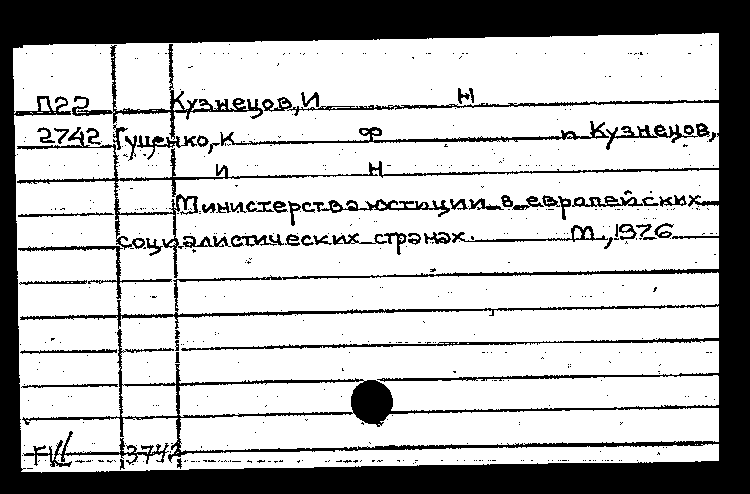 П22 Кузнецов, И Н
2742 Гуценко, К Ф п Кузнецов,
И Н
Министерства юстиции в европейских
социалистических странах. М., 1976
3742